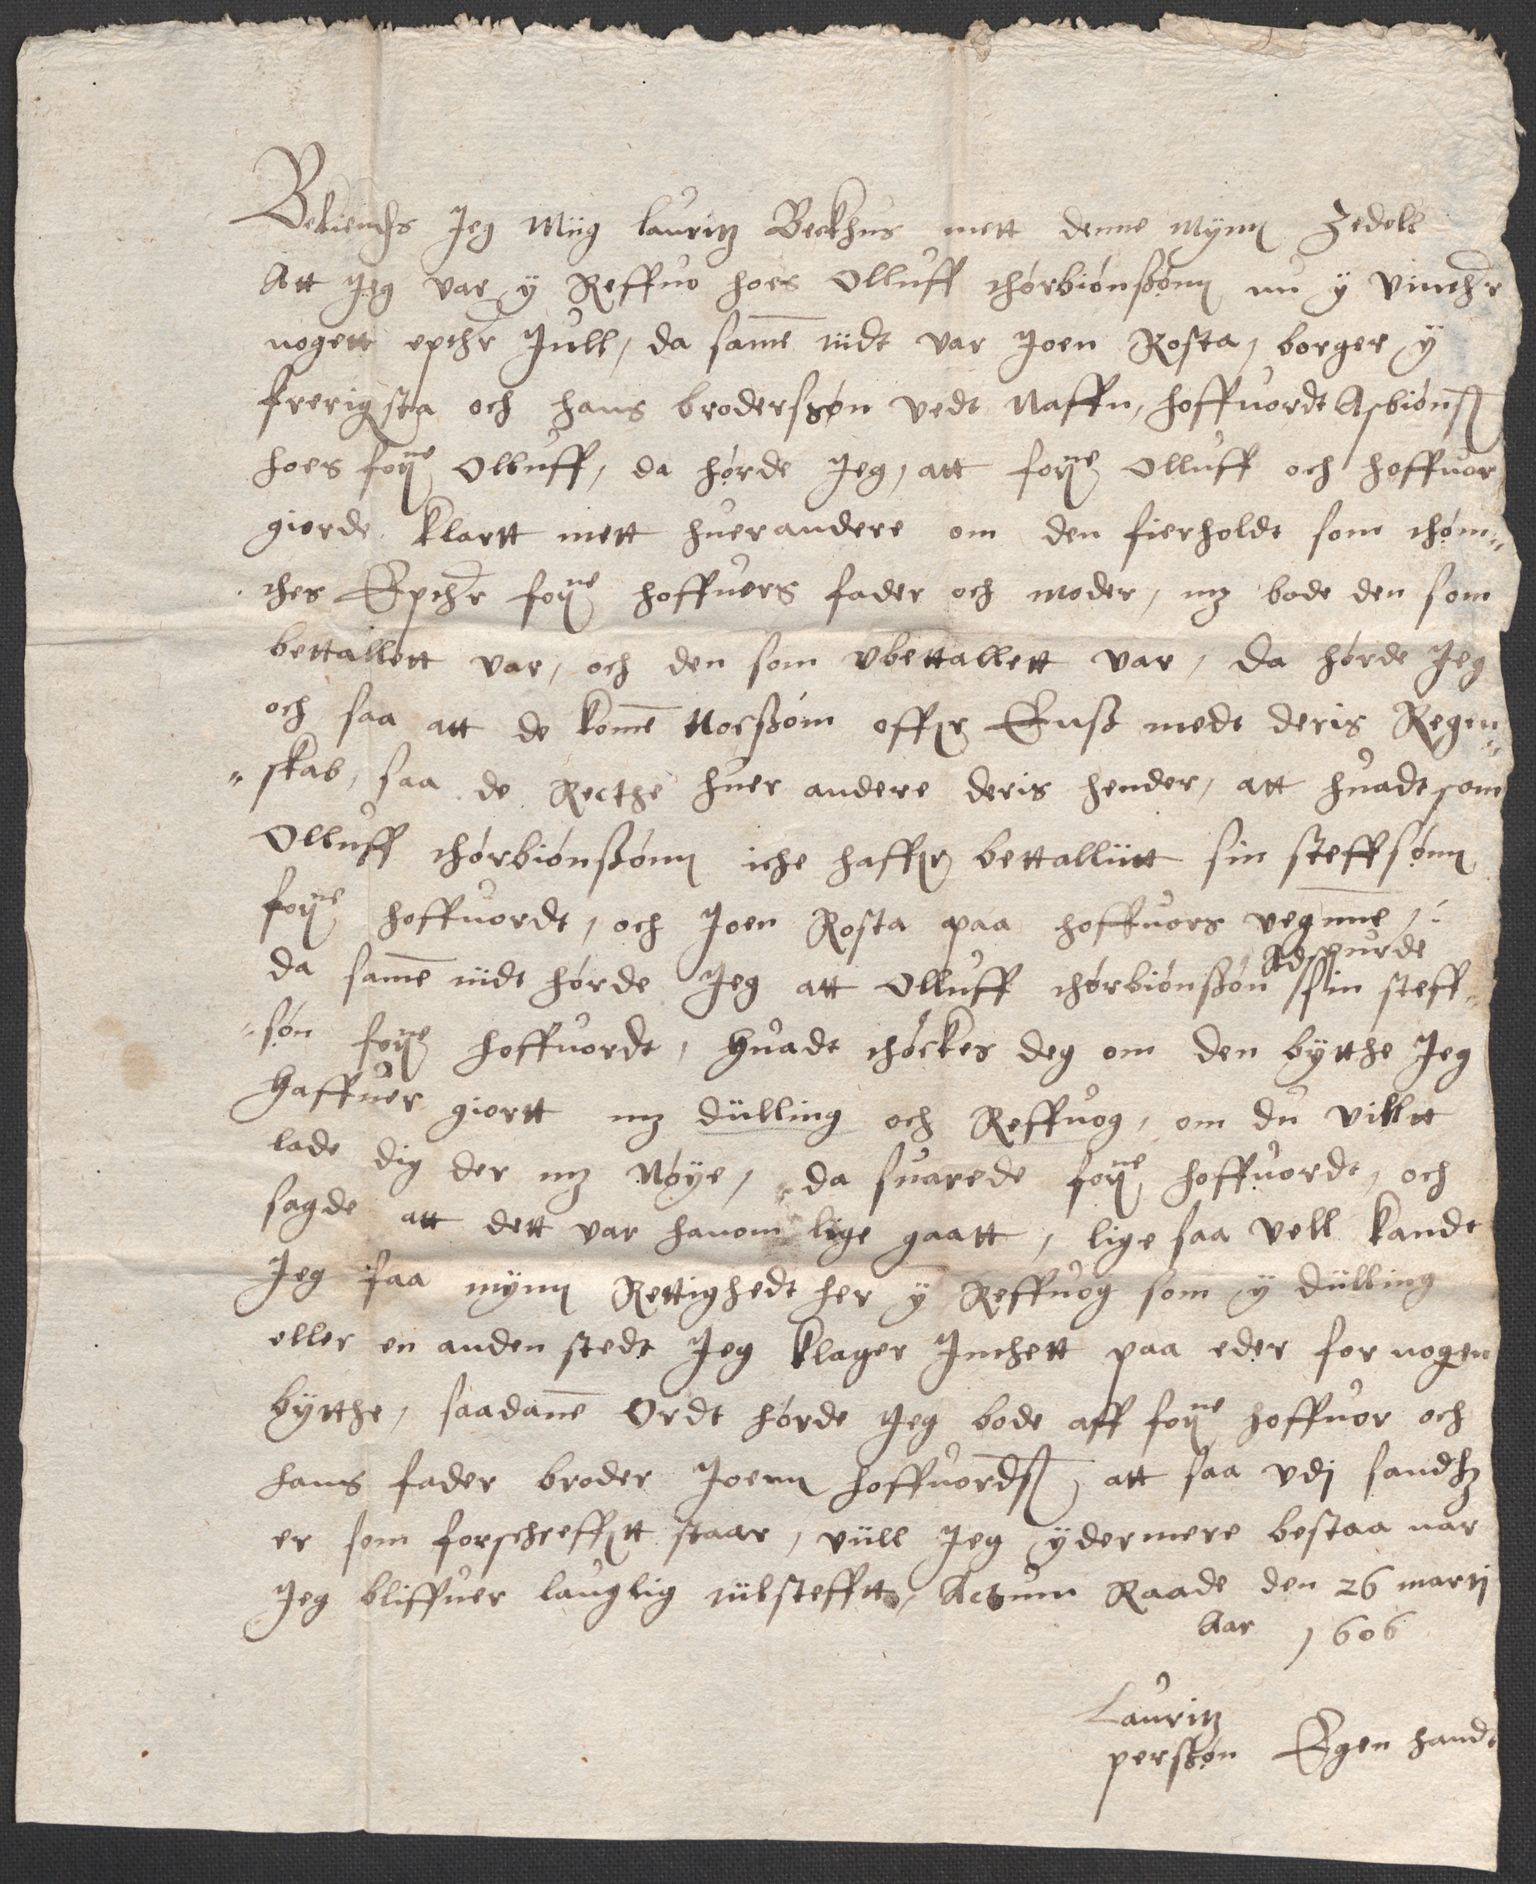 Bekiendhs Jeg Miig lauritz Beckhus mett denne mynn Zedell
Att Jeg var y Reffuo hoes Olluff thórbiónßónn nu y vinth̃r
nogett epth̃r Jull, da sam̃e tiidt var Joen Rosta, borger y
frerigsta och hans brodersßøn vedt naffn, hoffuordt Asbiónß
hoes for̃ne Olluff, da hørde Jeg, att for̃ne Olluff och hoffuor
giorde klartt mett huerandere om den fierholdt som thøm„
thes Epth̃r for̃ne hoffuers fader och moder, mz bode den som
bettallett var, och den som vbettallett var, da hørde Jeg
och saa att de kom̃e tocßóm offuer Enß medt deris Regen„
„skab, saa de Recthe huer andere deris hender, att huadt som
Olluff thórbiónßónn iche haffuer bettalliitt sin steffsønn
for̃ne hoffuordt, och Joen Rosta paa hoffuors vegnne,
da sam̃e tiidt hørde Jeg att Olluff thórbiónßón Adspurde sin steff„
„søn for̃ne hoffuordt, Huadt thóckes deg om den bytthe Jeg
Haffuer giortt mz dülling och Reffuog, om du villtt
lade dig der mz Nóye, da suarede for̃ne hoffuordt, och
sagde att dett var hanom lige gaatt, lige saa vell kandt
Jeg faa mynn Rettighedt her y Reffuog som y dülling
eller en anden stedt Jeg klager Inthett paa eder for nogen
bytthe, saadan̄e Ordt hørde Jeg bode aff for̃ne hoffuor och
hans fader broder Joenn hoffuordß, att saa vdj sandhz
er som forschreffuitt staar, viill Jeg ydermere bestaa nar
Jeg bliffuer lauglig tilstefftt, Actum Raade den 26 martj
Aar 1606
Lauritz
persßón Egen handt